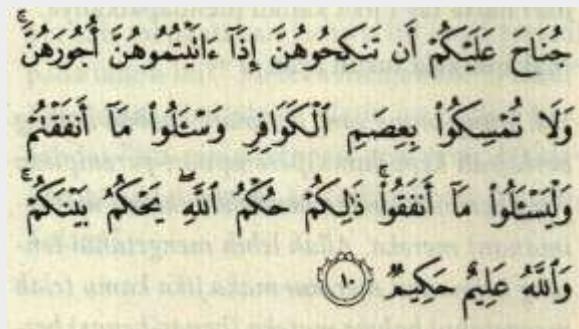 جُنَاحَ عَلَيْكُمْ أَن تَنكِحُوهُنَّ إِذَآ ءَاتَيْتُمُوهُنَّ أُجُورَهُنَّ ۚ
وَلَا تُمْسِكُوا۟ بِعِصَمِ ٱلْكَوَافِرِ وَسْـَٔلُوا۟ مَآ أَنفَقْتُمْ
وَلْيَسْـَٔلُوا۟ مَآ أَنفَقُوا۟ ۚ ذَٰلِكُمْ حُكْمُ ٱللَّهِ ۖ يَحْكُمُ بَيْنَكُمْ ۚ
وَٱللَّهُ عَلِيمٌ حَكِيمٌ ١٠